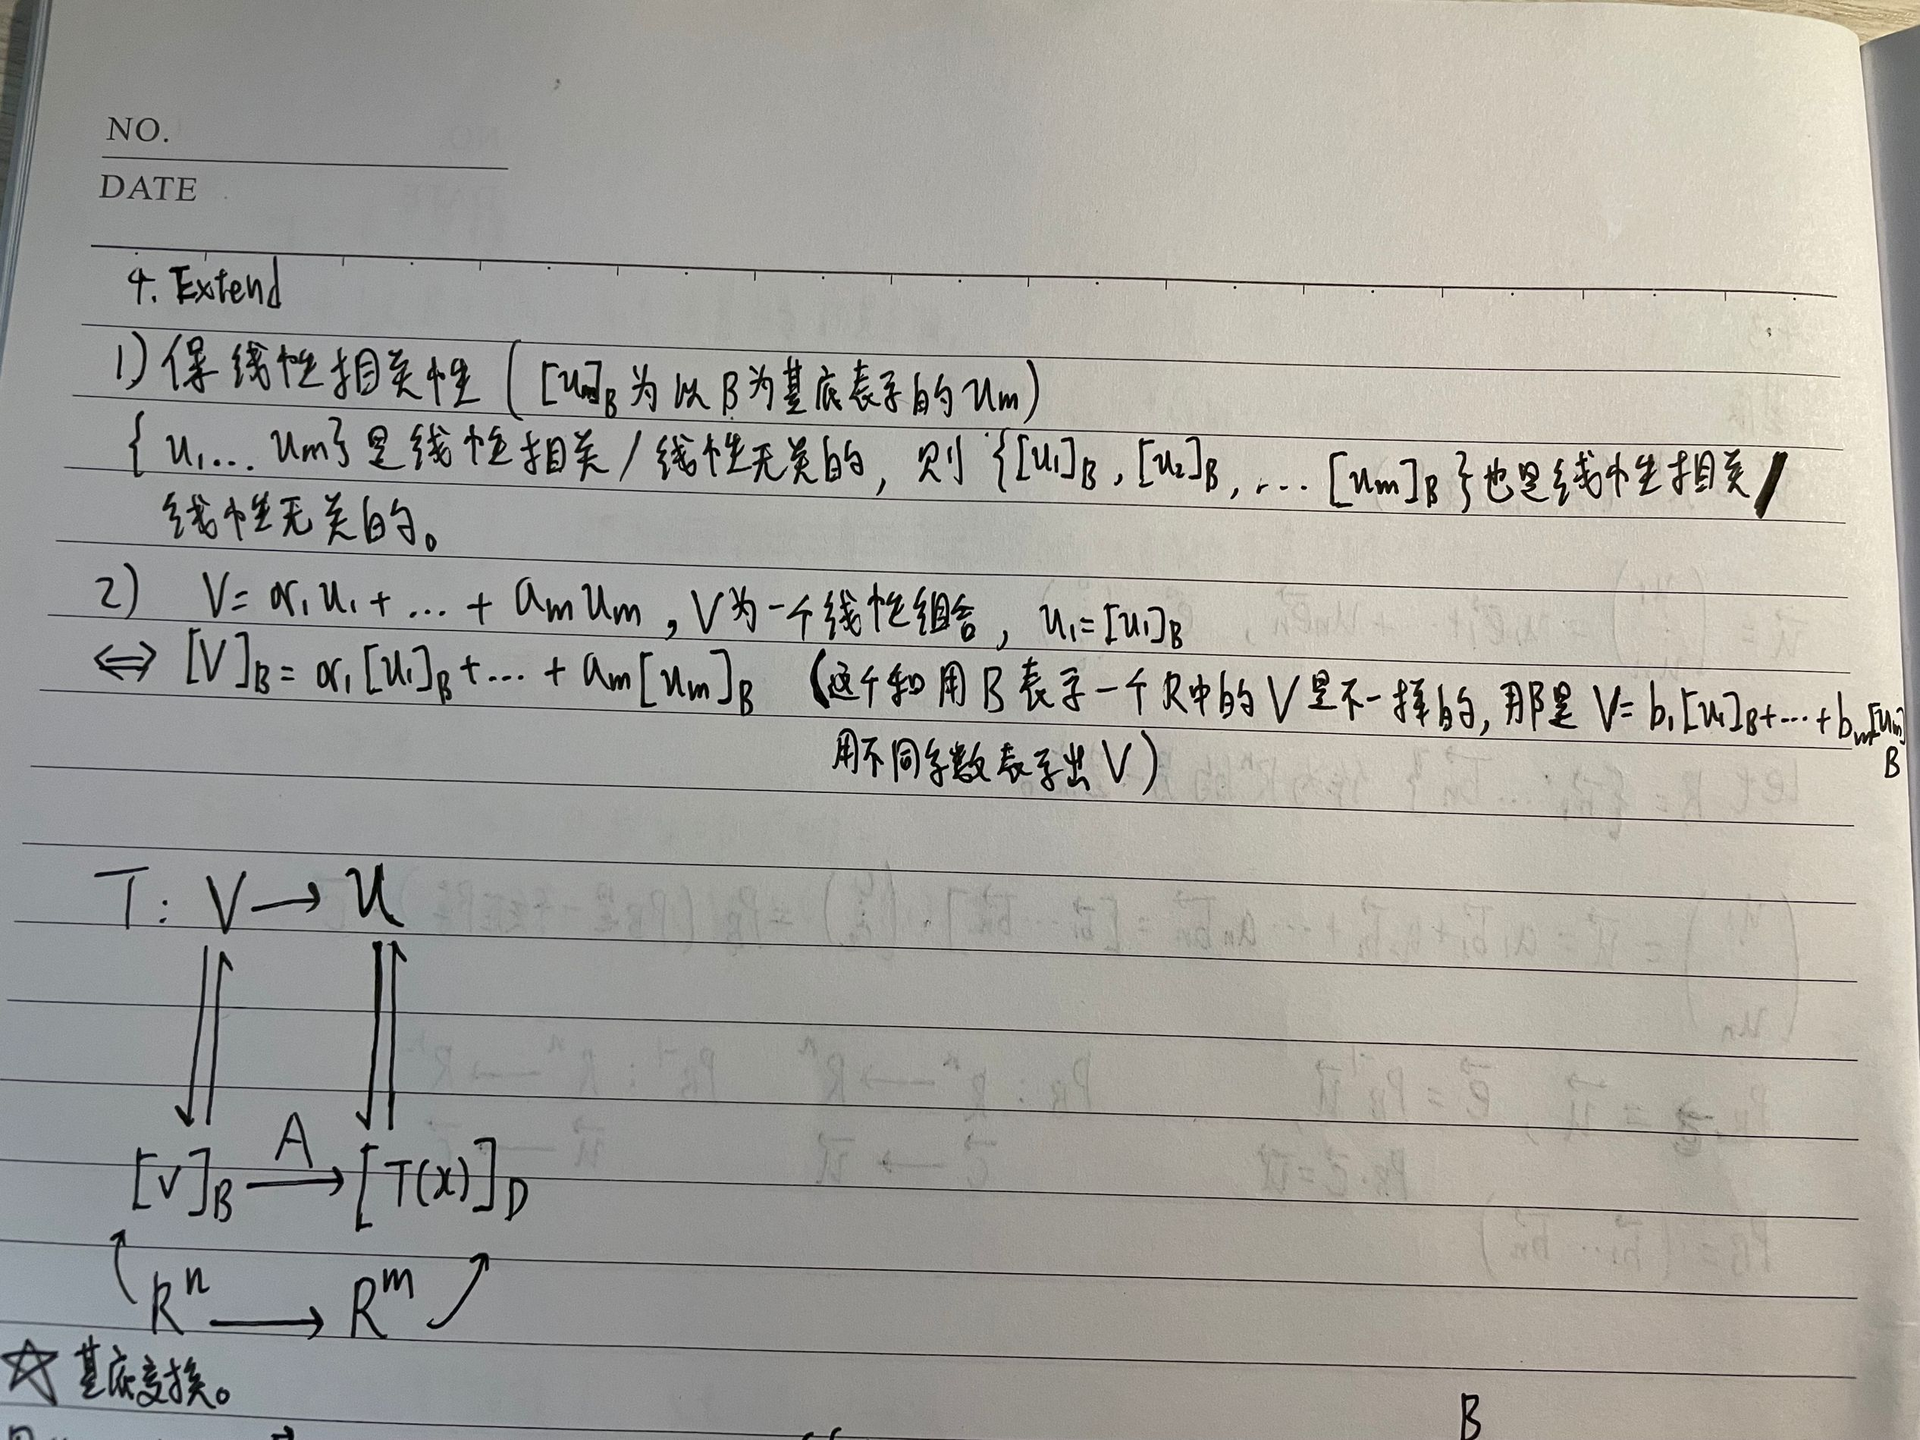 NO.
DATE
4. Extend
1) 保线性相关性 ( [um]B 为以B为基底表示的 um )
{ u1... um} 是线性相关 / 线性无关的, 则 {[u1]B, [u2]B, ... [um]B } 也是线性相关 /
线性无关的。
2) V= α1u1 + ... + amum, V为一个线性组合, u1=[u1]B
⇔ [V]B = α1[u1]B + ... + am[um]B (这个和用B表示一个R中的V是不一样的, 那是 V= b1[u1]B+...+bm[um]B
用不同字数表示出V)
T: V → U
[v]B A → [T(x)]D
R^n → R^m
☆ 基底变换。
B